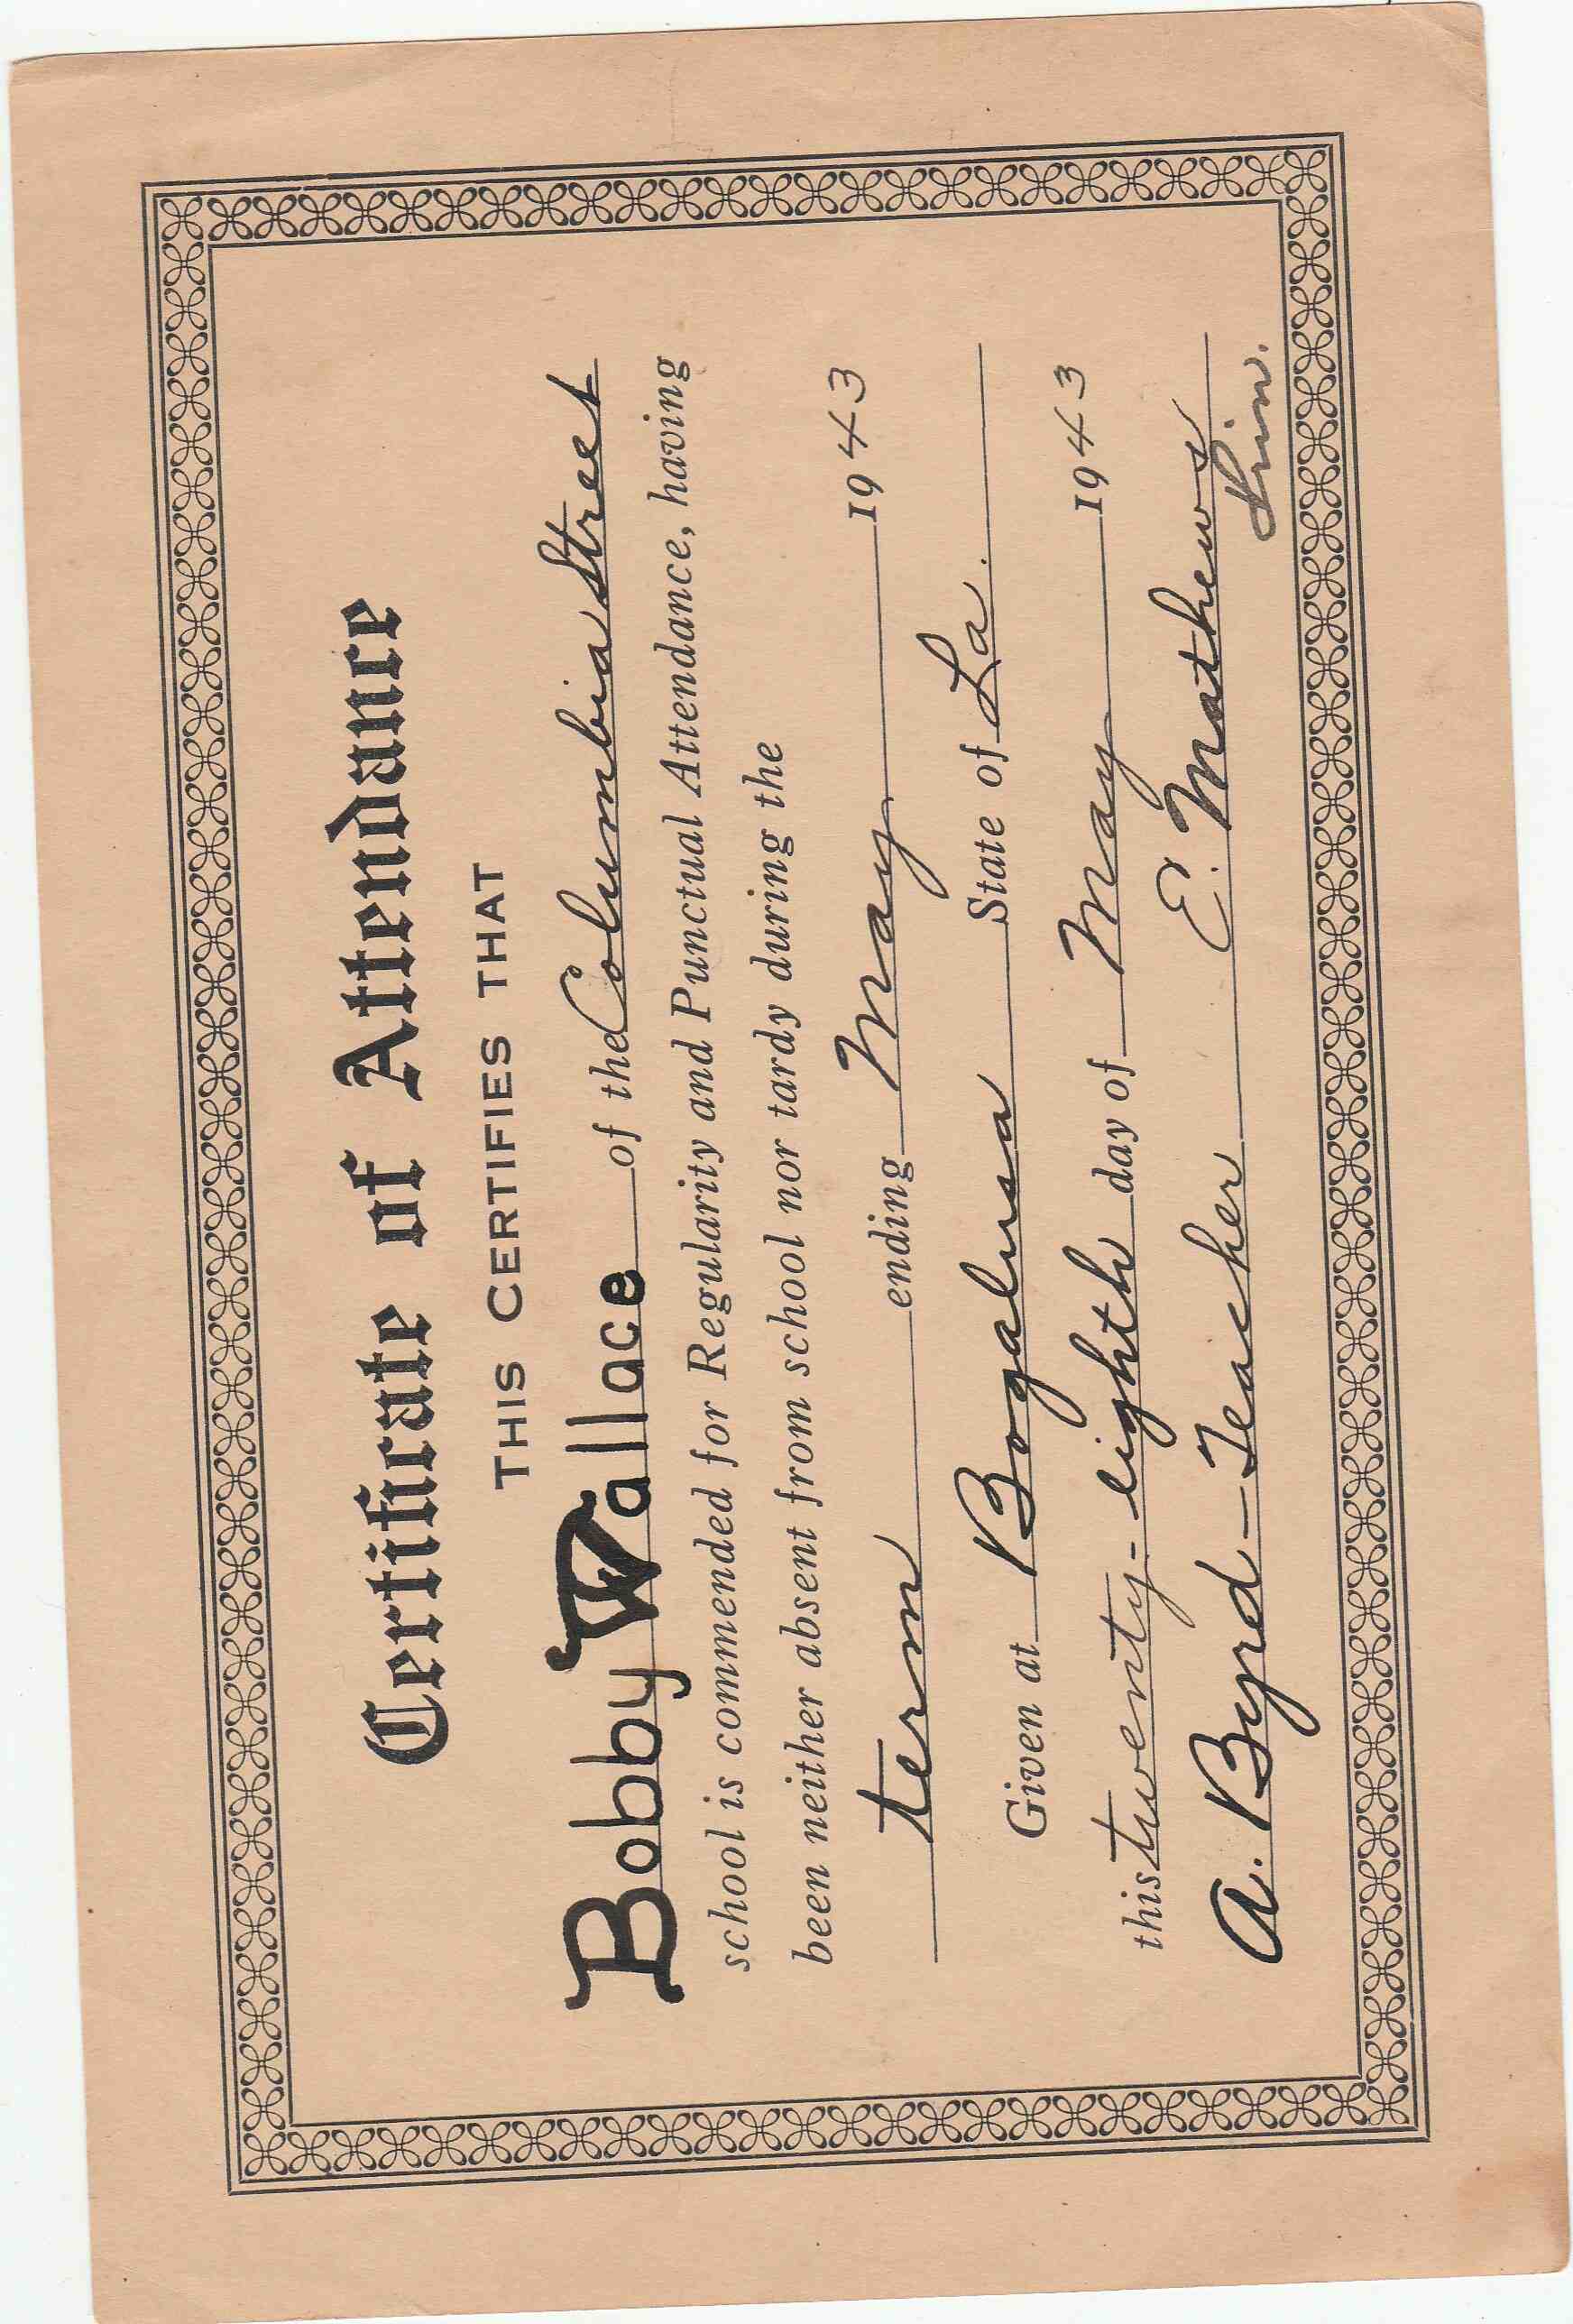 Certificate of Attendance
THIS CERTIFIES THAT
Bobby Wallace of the Columbia Street
school is commended for Regularity and Punctual Attendance, having
been neither absent from school nor tardy during the
term ending May 1943
Given at Bogalusa State of La.
this twenty-eighth day of May 1943
A. Byrd - Teacher E. Mathews
Prin.